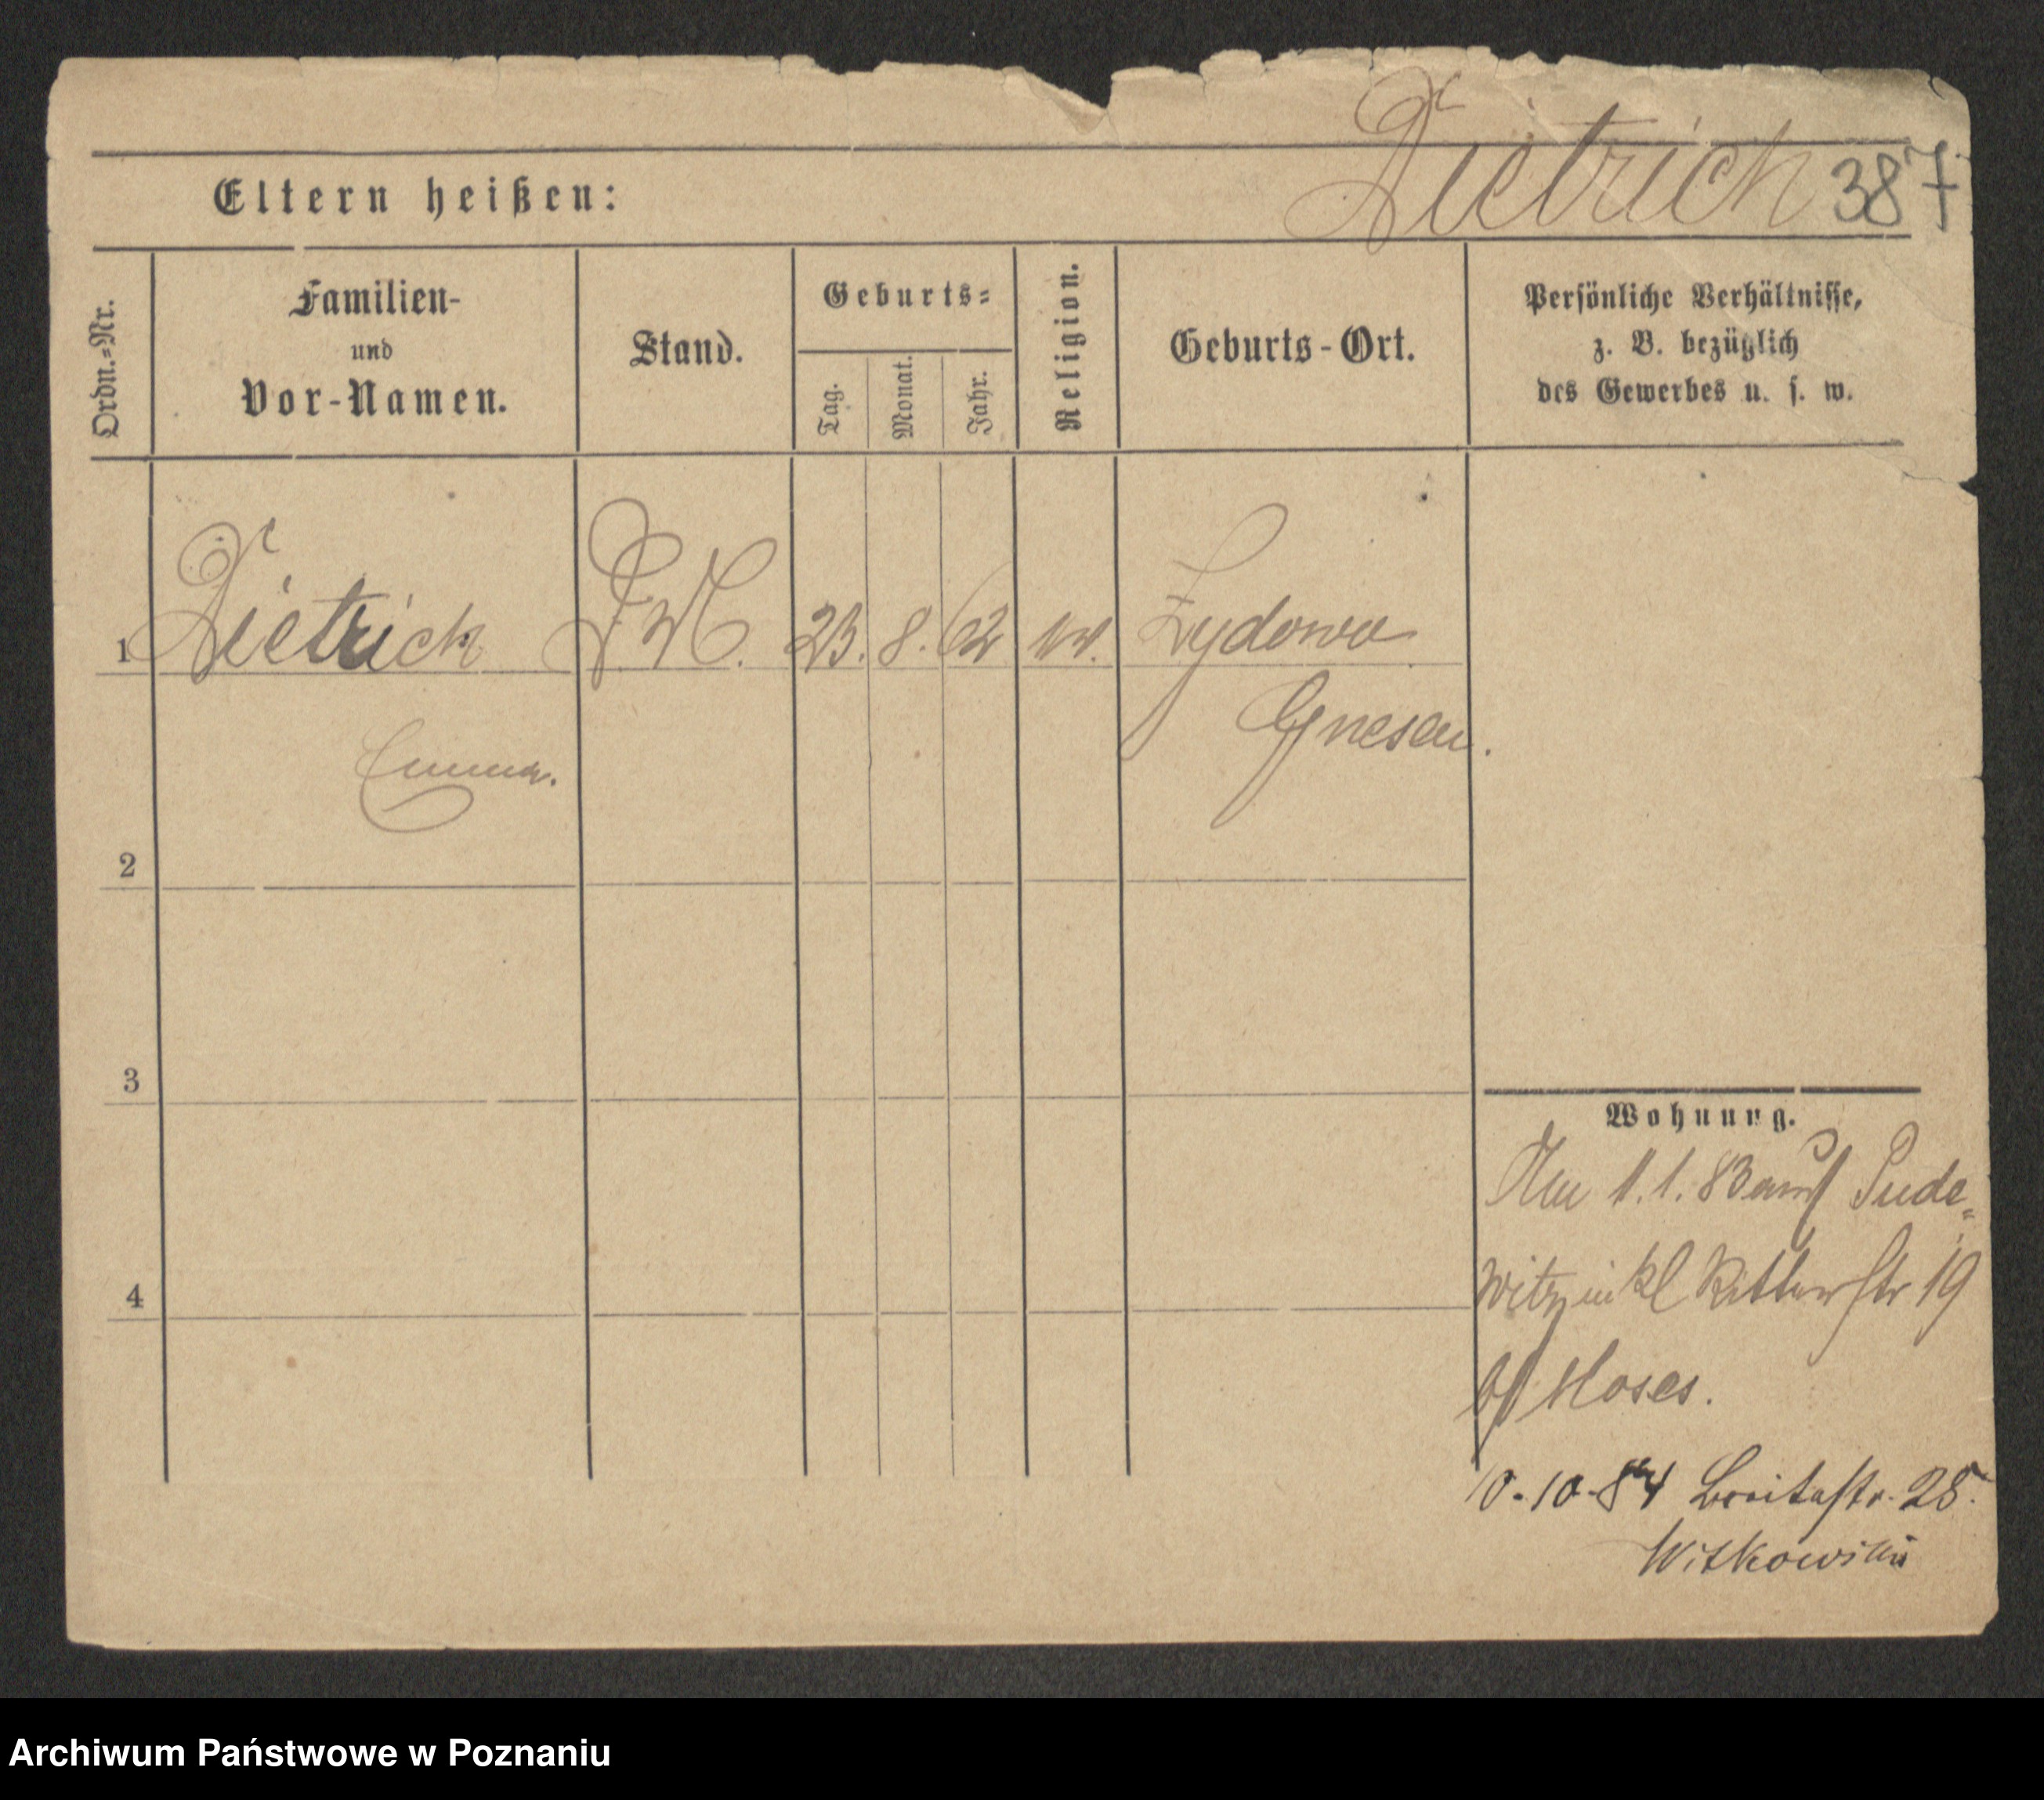 Dietrich 387
Eltern heißen:
Ordn.=Nr.
Familien-
und
Vor-Namen.
Stand.
Geburts=
Tag.
Monat.
Jahr.
Religion.
Geburts-Ort.
Persönliche Verhältnisse,
z. B. bezüglich
des Gewerbes u. s. w.
1 Dietrich D.M. 23. 8. 62 Zydowo
Gnesen.
Emma.
2
3
4
Wohnung.
Am 11.1.83 aus Pude=
witz in kl Ritterstr 19
b/ Moses.
10-10-84 Breitestr. 25.
Witkowski
Archiwum Państwowe w Poznaniu